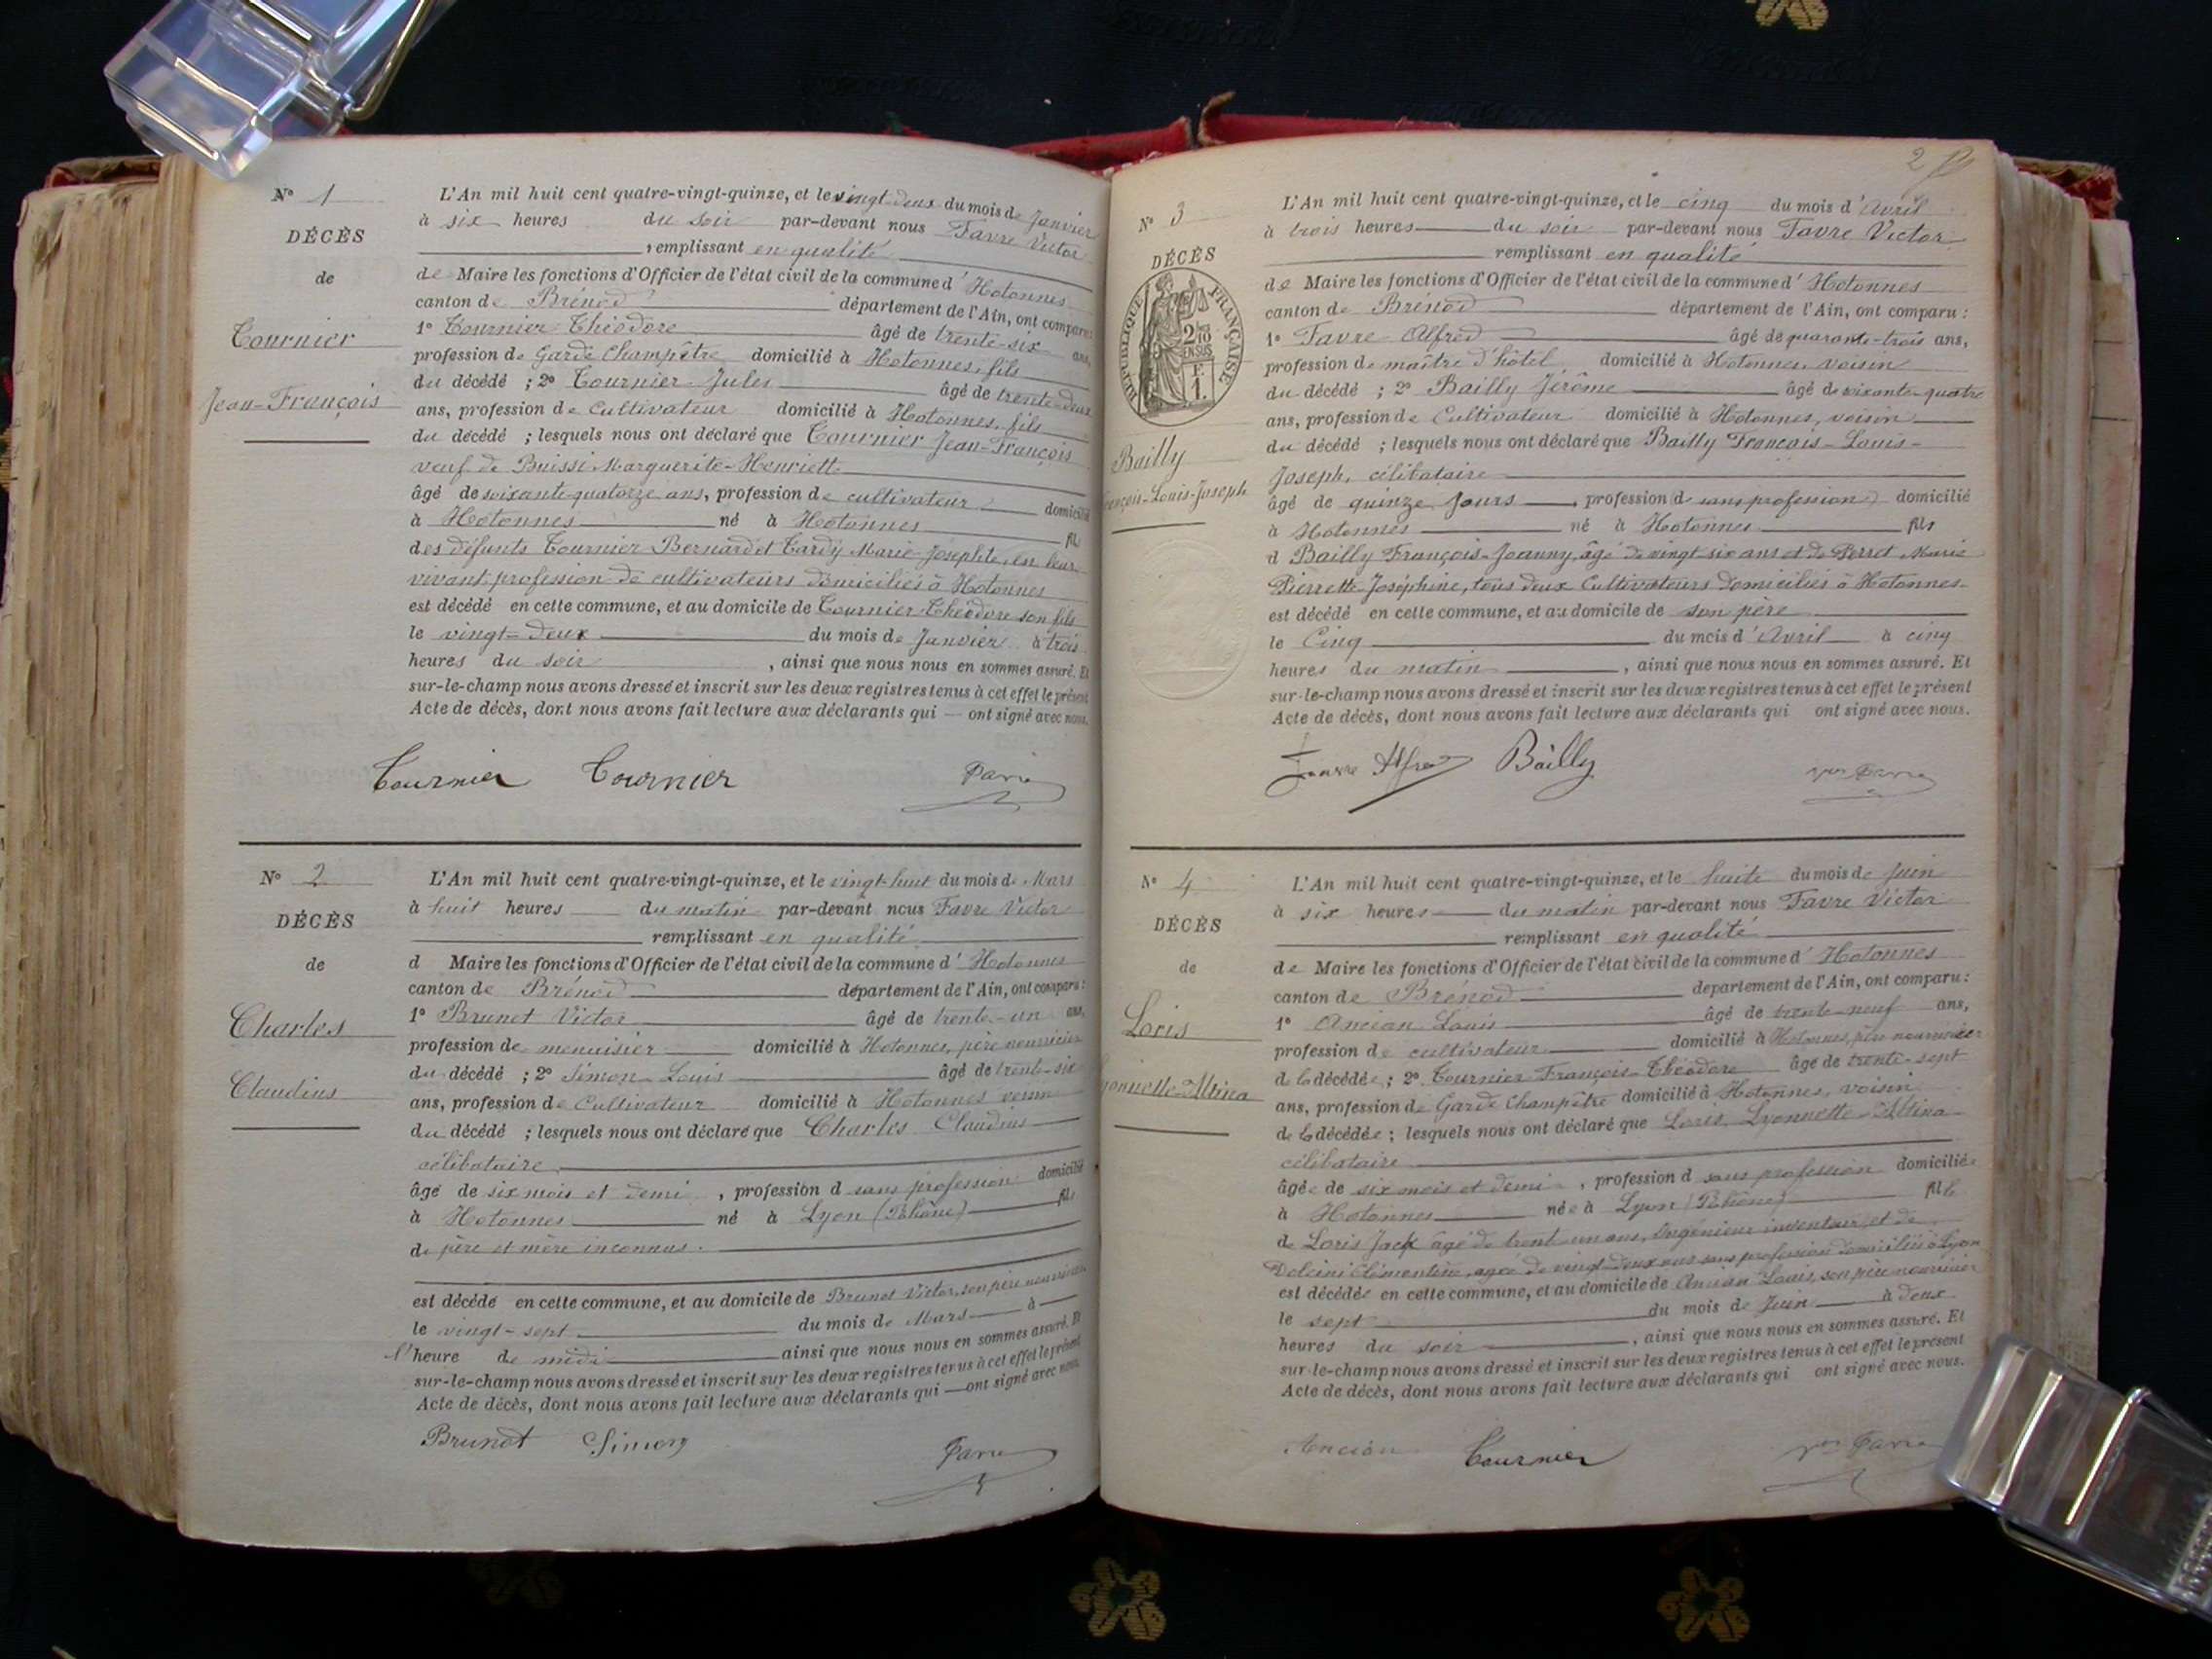 N° 1
DÉCÈS
de
Tournier
Jean-François
L'An mil huit cent quatre-vingt-quinze, et le vingt-deux du mois de Janvier
à six heures du soir par-devant nous Favre Victor
remplissant en qualité
de Maire les fonctions d'Officier de l'état civil de la commune d'Hotonnes
canton de Brénod département de l'Ain, ont comparu:
1° Tournier Théodore âgé de trente-six ans,
profession de Garde Champêtre domicilié à Hotonnes, fils
du décédé ; 2° Tournier Jules âgé de trente-deux
ans, profession de Cultivateur domicilié à Hotonnes, fils
du décédé ; lesquels nous ont déclaré que Tournier Jean-François
veuf de Buissi Marguerite-Henriette
âgé de soixante-quatorze ans, profession de cultivateur domicilié
à Hotonnes né à Hotonnes fils
des défunts Tournier Bernard et Tardy Marie-Josephte, en leur
vivant profession de cultivateurs domiciliés à Hotonnes
est décédé en cette commune, et au domicile de Tournier Théodore son fils
le vingt-deux du mois de Janvier à trois
heures du soir , ainsi que nous nous en sommes assuré. Et
sur-le-champ nous avons dressé et inscrit sur les deux registres tenus à cet effet le présent
Acte de décès, dont nous avons fait lecture aux déclarants qui — ont signé avec nous.
Tournier Tournier Favre
N° 2
DÉCÈS
de
Charles
Claudius
L'An mil huit cent quatre-vingt-quinze, et le vingt-huit du mois de Mars
à huit heures du matin par-devant nous Favre Victor
remplissant en qualité
d Maire les fonctions d'Officier de l'état civil de la commune d'Hotonnes
canton de Brénod département de l'Ain, ont comparu:
1° Brunet Victor âgé de trente-un ans,
profession de menuisier domicilié à Hotonnes, père nourricier
du décédé ; 2° Simon Louis âgé de trente-six
ans, profession de Cultivateur domicilié à Hotonnes voisin
du décédé ; lesquels nous ont déclaré que Charles Claudius
célibataire
âgé de six mois et demi , profession d sans profession domicilié
à Hotonnes né à Lyon (Rhône) fils
de père et mère inconnus.
est décédé en cette commune, et au domicile de Brunet Victor, son père nourricier
le vingt-sept du mois de Mars à
l'heure de midi ainsi que nous nous en sommes assuré. Et
sur-le-champ nous avons dressé et inscrit sur les deux registres tenus à cet effet le présent
Acte de décès, dont nous avons fait lecture aux déclarants qui — ont signé avec nous.
Brunet Simon Favre
2
N° 3
DÉCÈS
RÉPUBLIQUE FRANÇAISE
2/10
EN SUS
F.
1.
Bailly
François-Louis-Joseph
L'An mil huit cent quatre-vingt-quinze, et le cinq du mois d'Avril
à trois heures du soir par-devant nous Favre Victor
remplissant en qualité
de Maire les fonctions d'Officier de l'état civil de la commune d'Hotonnes
canton de Brénod département de l'Ain, ont comparu:
1° Favre Alfred âgé de quarante-trois ans,
profession de maître d'hôtel domicilié à Hotonnes, voisin
du décédé ; 2° Bailly Jérôme âgé de soixante-quatre
ans, profession de Cultivateur domicilié à Hotonnes, voisin
du décédé ; lesquels nous ont déclaré que Bailly François-Louis-
Joseph, célibataire
âgé de quinze jours , profession d sans profession domicilié
à Hotonnes né à Hotonnes fils
d Bailly François-Joanny, âgé de vingt-six ans et de Perret Marie
Pierrette-Joséphine, tous deux Cultivateurs domiciliés à Hotonnes
est décédé en cette commune, et au domicile de son père
le Cinq du mois d'Avril à cinq
heures du matin , ainsi que nous nous en sommes assuré. Et
sur-le-champ nous avons dressé et inscrit sur les deux registres tenus à cet effet le présent
Acte de décès, dont nous avons fait lecture aux déclarants qui ont signé avec nous.
Favre Alfred Bailly Favre
N° 4
DÉCÈS
de
Loris
Lyonnette-Albina
L'An mil huit cent quatre-vingt-quinze, et le huit du mois de Juin
à six heures du matin par-devant nous Favre Victor
remplissant en qualité
de Maire les fonctions d'Officier de l'état civil de la commune d'Hotonnes
canton de Brénod département de l'Ain, ont comparu:
1° Ancian Louis âgé de trente-neuf ans,
profession de cultivateur domicilié à Hotonnes, père nourricier
de la décédée ; 2° Tournier François-Théodore âgé de trente-sept
ans, profession de Garde Champêtre domicilié à Hotonnes, voisin
de la décédée ; lesquels nous ont déclaré que Loris Lyonnette-Albina
célibataire
âgée de six mois et demi , profession d sans profession domiciliée
à Hotonnes née à Lyon (Rhône) fille
de Loris Jack âgé de trent un ans, Ingénieur inventeur, et de
Dolcini Clémentine, agée de vingt-deux ans sans profession domiciliés à Lyon
est décédée en cette commune, et au domicile de Ancian Louis, son père nourricier
le sept du mois de Juin à deux
heures du soir , ainsi que nous nous en sommes assuré. Et
sur-le-champ nous avons dressé et inscrit sur les deux registres tenus à cet effet le présent
Acte de décès, dont nous avons fait lecture aux déclarants qui ont signé avec nous.
Ancian Tournier Favre